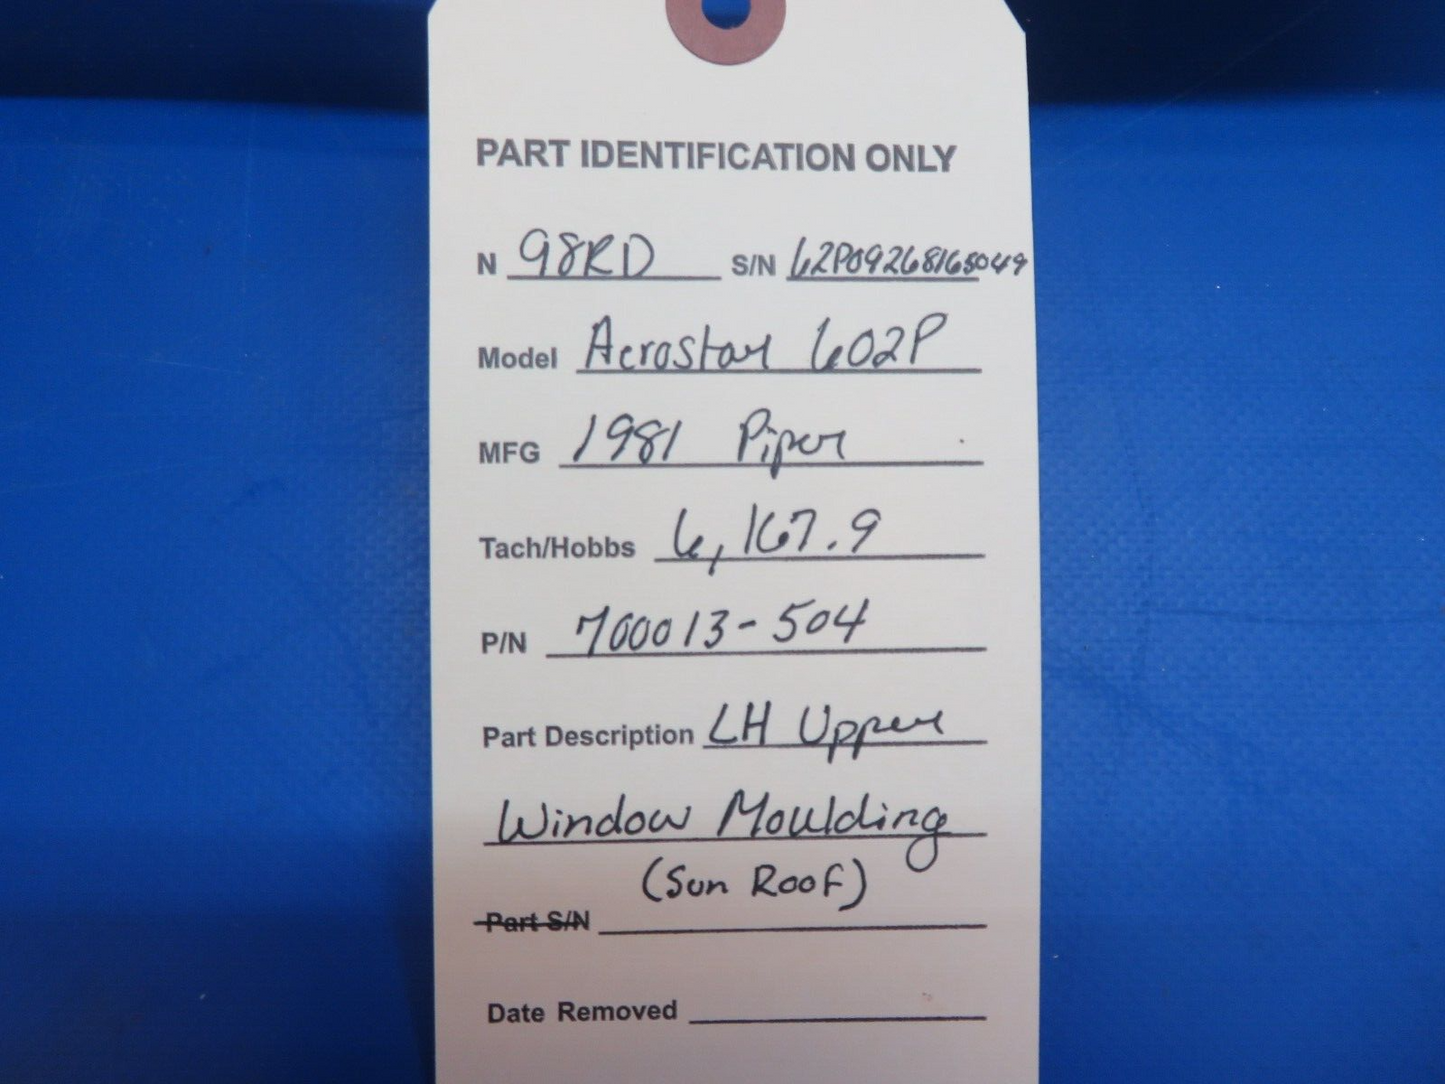 PART IDENTIFICATION ONLY
N 98RD S/N 62P09268165049
Model Aerostar 602P
MFG 1981 Piper
Tach/Hobbs 6,167.9
P/N 700013-504
Part Description LH Upper
Window Moulding
(Sun Roof)
Part S/N
Date Removed